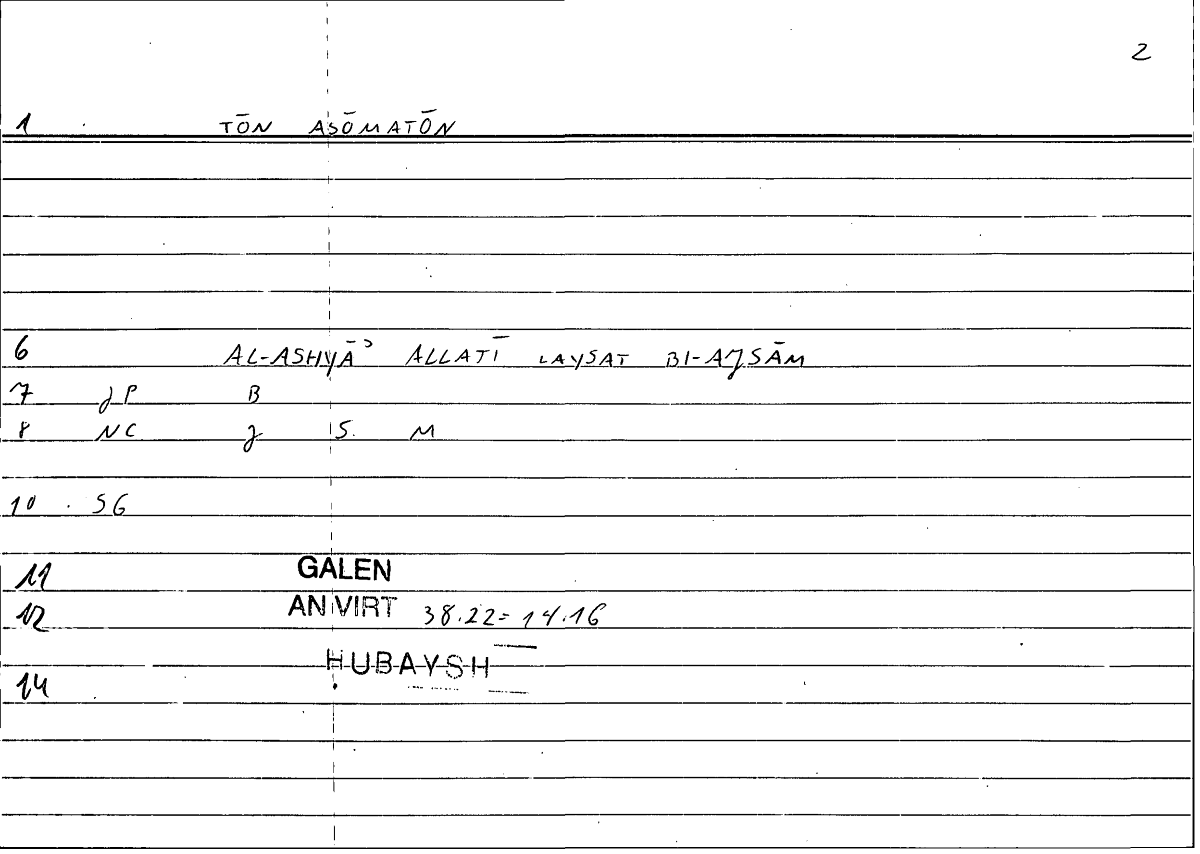 2
1 TŌN ASŌMATŌN
6 AL-ASHYĀʾ ALLATĪ LAYSAT BI-AJSĀM
7 JP B
8 NC J S. M
10 SG
11 GALEN
12 AN VIRT 38.22=14.16
ḤUBAYSH
14